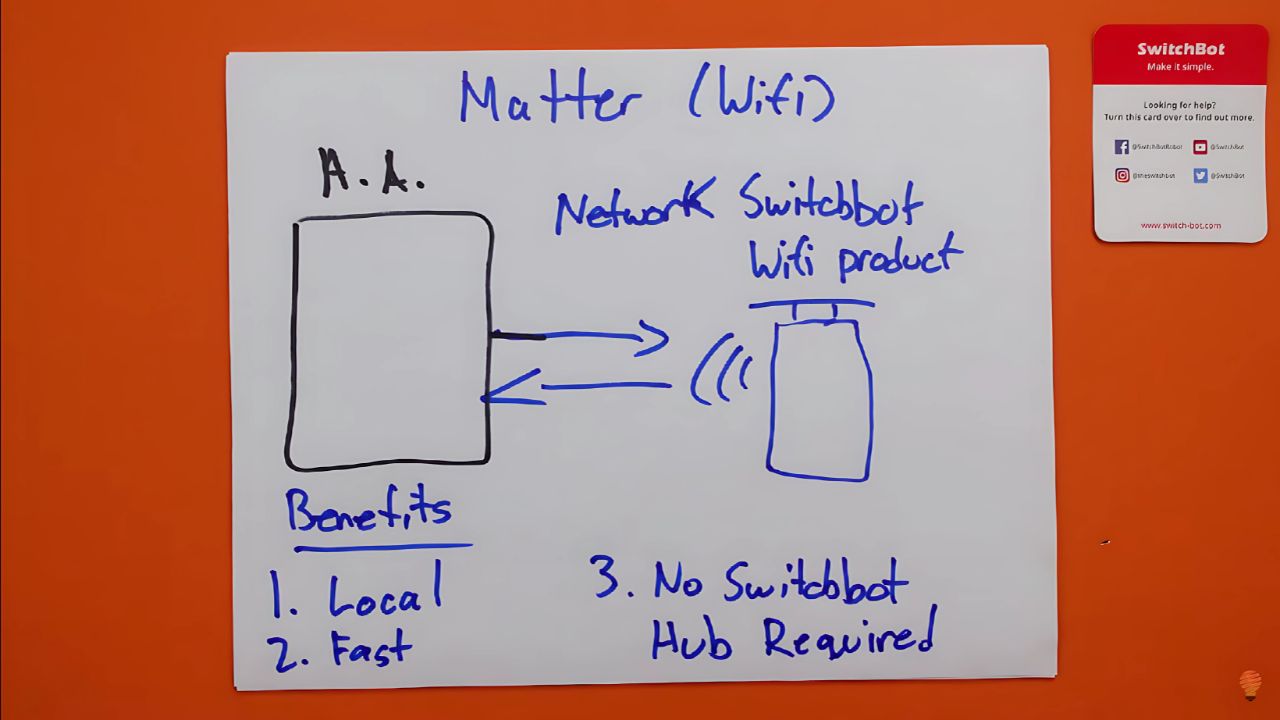 Matter (Wifi)
H.A.
Network Switchbot
Wifi product
Benefits
1. Local
2. Fast
3. No Switchbot
Hub Required
SwitchBot
Make it simple.
Looking for help?
Turn this card over to find out more.
@SwitchBotRobot
@SwitchBot
@theswitchbot
@SwitchBot
www.switch-bot.com